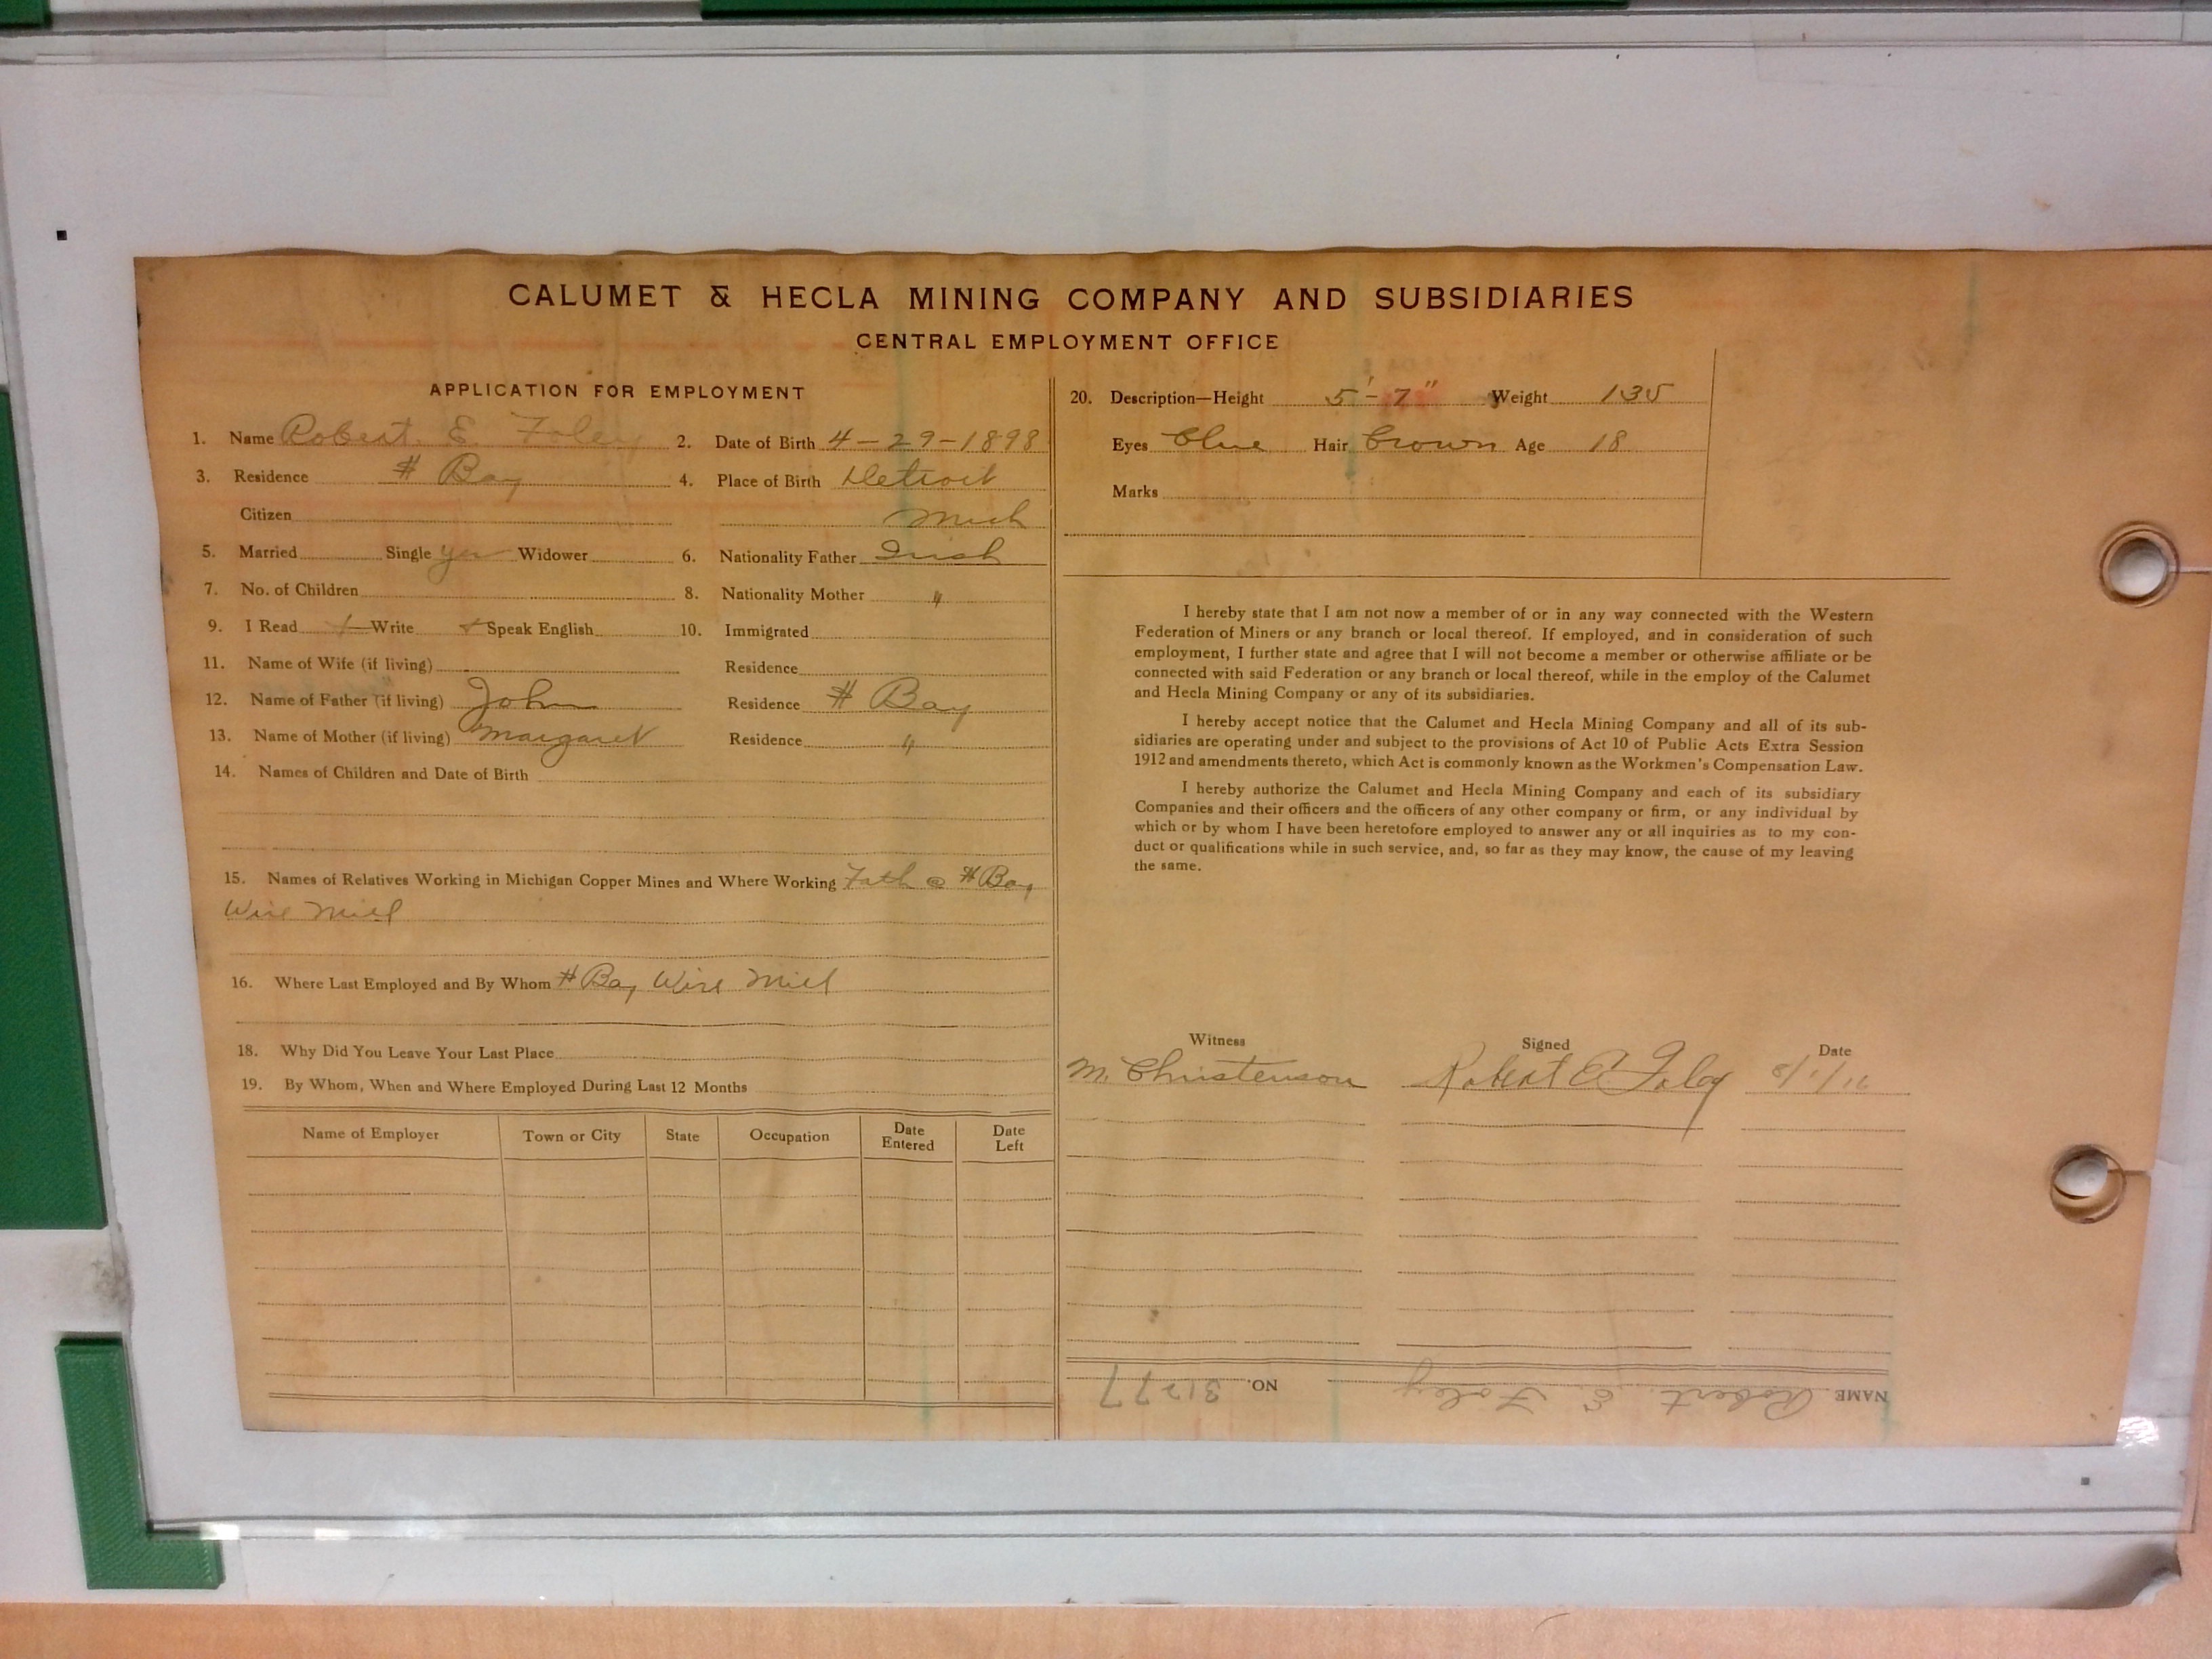 CALUMET & HECLA MINING COMPANY AND SUBSIDIARIES
CENTRAL EMPLOYMENT OFFICE
APPLICATION FOR EMPLOYMENT
1. Name Robert E. Foley 2. Date of Birth 4-29-1898
3. Residence # Bay 4. Place of Birth Detroit
Citizen Mich
5. Married Single yes Widower 6. Nationality Father Irish
7. No. of Children 8. Nationality Mother "
9. I Read Write Speak English 10. Immigrated
11. Name of Wife (if living) Residence
12. Name of Father (if living) John Residence # Bay
13. Name of Mother (if living) Margaret Residence "
14. Names of Children and Date of Birth
15. Names of Relatives Working in Michigan Copper Mines and Where Working Fath @ # Bay
Wire Mill
16. Where Last Employed and By Whom # Bay Wire Mill
18. Why Did You Leave Your Last Place
19. By Whom, When and Where Employed During Last 12 Months
Name of Employer Town or City State Occupation Date Entered Date Left
20. Description—Height 5'-7" Weight 135
Eyes blue Hair brown Age 18
Marks
I hereby state that I am not now a member of or in any way connected with the Western
Federation of Miners or any branch or local thereof. If employed, and in consideration of such
employment, I further state and agree that I will not become a member or otherwise affiliate or be
connected with said Federation or any branch or local thereof, while in the employ of the Calumet
and Hecla Mining Company or any of its subsidiaries.
I hereby accept notice that the Calumet and Hecla Mining Company and all of its sub-
sidiaries are operating under and subject to the provisions of Act 10 of Public Acts Extra Session
1912 and amendments thereto, which Act is commonly known as the Workmen's Compensation Law.
I hereby authorize the Calumet and Hecla Mining Company and each of its subsidiary
Companies and their officers and the officers of any other company or firm, or any individual by
which or by whom I have been heretofore employed to answer any or all inquiries as to my con-
duct or qualifications while in such service, and, so far as they may know, the cause of my leaving
the same.
Witness Signed Date
M. Christenson Robert E Foley 8/1/16
NAME Robert E. Foley NO. 31277